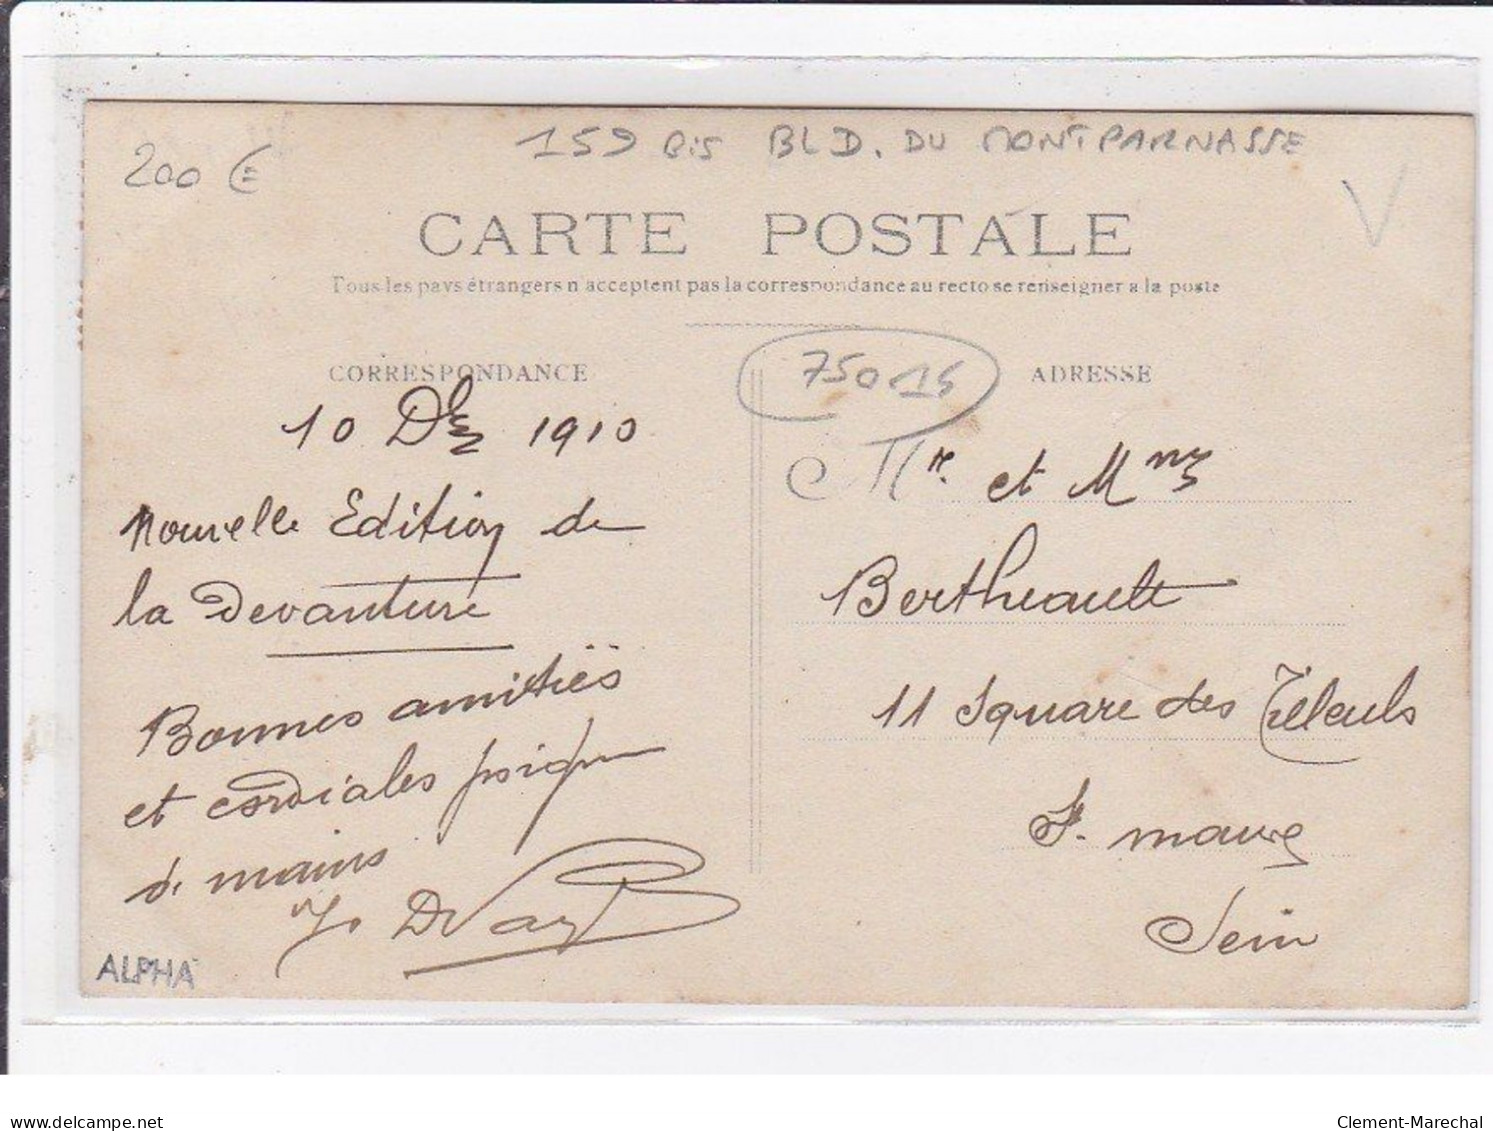 159 Bis BLD. DU MONTPARNASSE
200 €
V
CARTE POSTALE
Tous les pays étrangers n'acceptent pas la correspondance au recto se renseigner a la poste
75015
CORRESPONDANCE
10 1910
Nouvelle Edition de
la Devanture
Bonnes amitiés
et cordiales
d. mains
ADRESSE
Mr. et Mme
Bertheault
11 Square des Tilleuls
St. maure
Sein
ALPHA
delcampe.net
Clement-Marechal